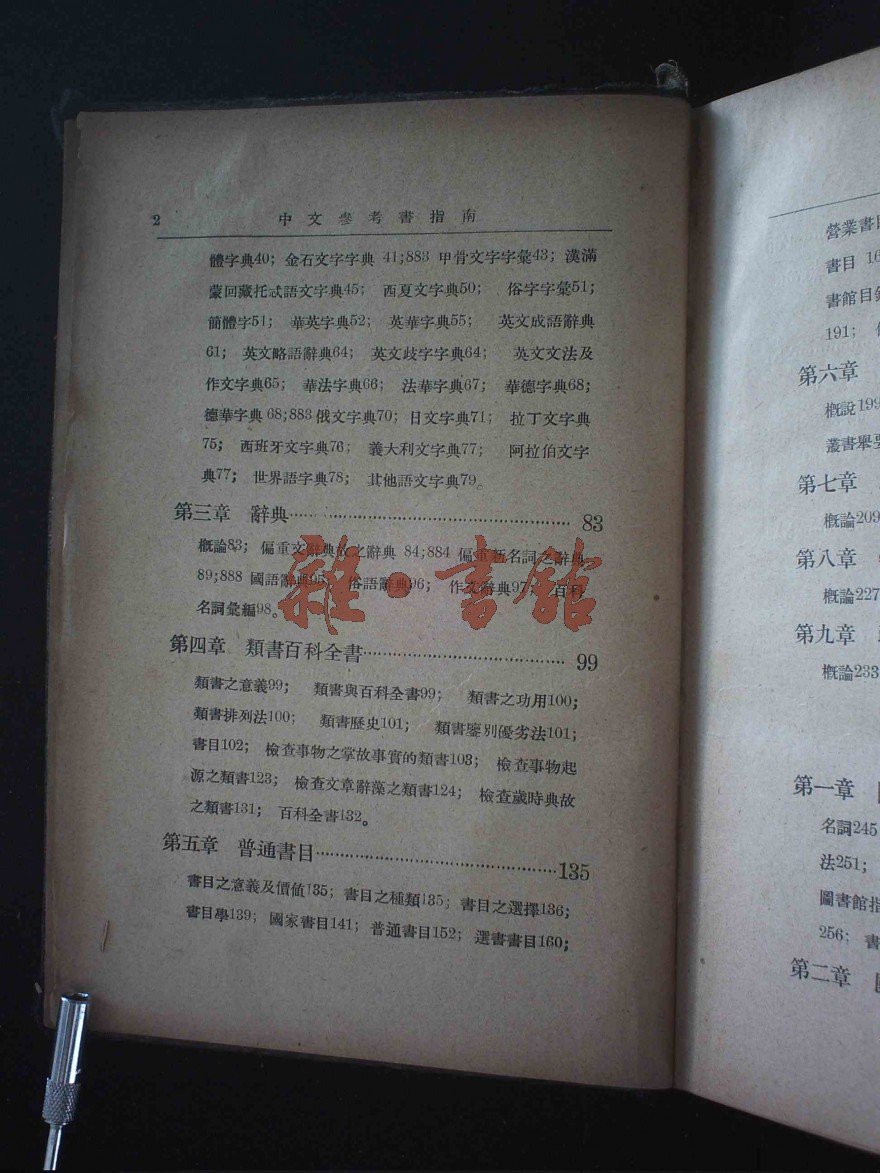 2 中文參考書指南
體字典40; 金石文字字典 41;883 甲骨文字字彙43; 漢滿
蒙回藏托忒語文字典45; 西夏文字典50; 俗字字彙51;
簡體字51; 華英字典52; 英華字典55; 英文成語辭典
61; 英文略語辭典64; 英文歧字字典64; 英文文法及
作文字典65; 華法字典66; 法華字典67; 華德字典68;
德華字典 68;883 俄文字典70; 日文字典71; 拉丁文字典
75; 西班牙文字典76; 義大利文字典77; 阿拉伯文字
典77; 世界語字典78; 其他語文字典79。
第三章 辭典 83
概論83; 偏重文辭典故之辭典 84;884 偏重新名詞之辭典
89;888 國語辭典95; 俗語辭典96; 作文辭典97; 百科
名詞彙編98。
第四章 類書百科全書 99
類書之意義99; 類書與百科全書99; 類書之功用100;
類書排列法100; 類書歷史101; 類書鑒別優劣法101;
書目102; 檢查事物之掌故事實的類書103; 檢查事物起
源之類書123; 檢查文章辭藻之類書124; 檢查歲時典故
之類書131; 百科全書132。
第五章 普通書目 135
書目之意義及價值135; 書目之種類135; 書目之選擇136;
書目學139; 國家書目141; 普通書目152; 選書書目160;
雜·書館
營業書目
書目 16
書館目錄
191;
第六章
概說199
叢書舉要
第七章
概論209
第八章
概論227
第九章
概論233
第一章
名詞245
法251;
圖書館指
256; 書
第二章